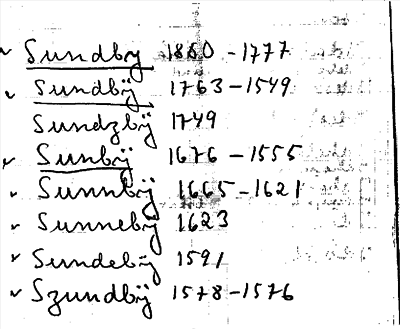 Sundby 1860-1777
Sundbÿ 1763-1549
Sundzbÿ 1749
Sunbÿ 1676-1555
Sunnbÿ 1665-1621
Sunnebÿ 1623
Sundebÿ 1591
Szundbÿ 1578-1576